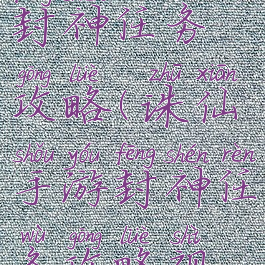 封神任务
gōng lüè zhū xiān
攻略(诛仙
shǒu yóu fēng shén rèn
手游封神任
wù gōng lüè shì
务攻略视